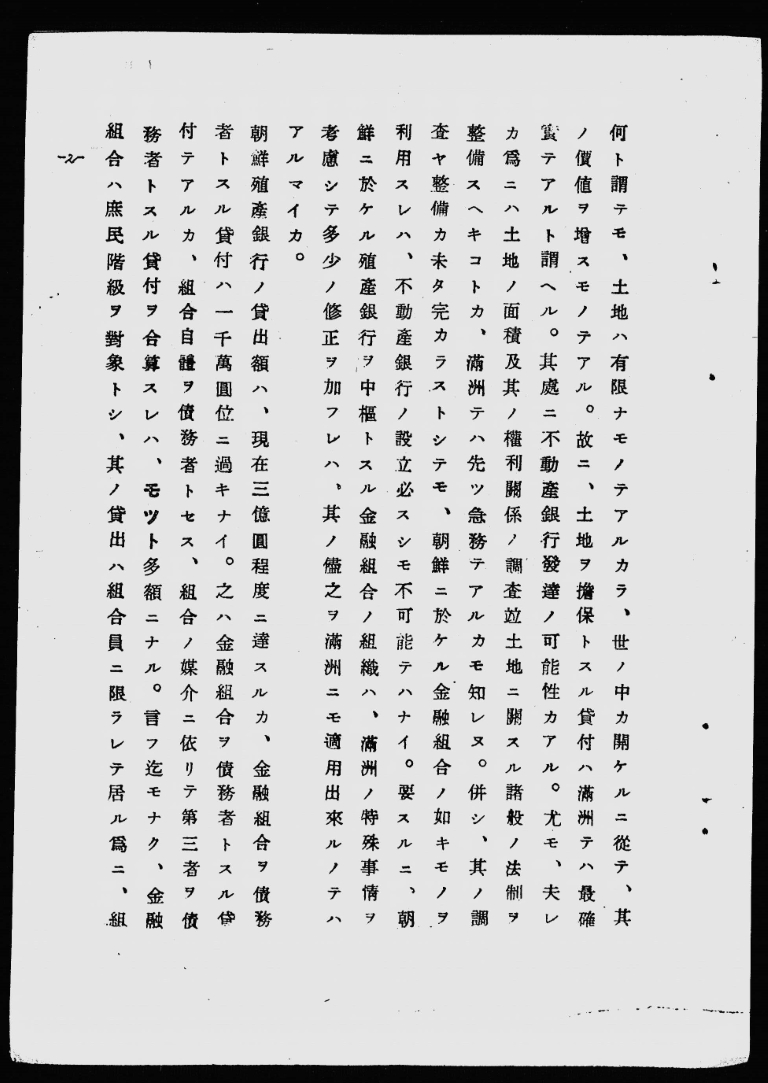 何ト謂テモ、土地ハ有限ナモノテアルカラ、世ノ中カ開ケルニ從テ、其
ノ價値ヲ增スモノテアル。故ニ、土地ヲ擔保トスル貸付ハ滿洲テハ最確
實テアルト謂ヘル。其處ニ不動產銀行發達ノ可能性カアル。尤モ、夫レ
カ爲ニハ土地ノ面積及其ノ權利關係ノ調査竝土地ニ關スル諸般ノ法制ヲ
整備スヘキコトカ、滿洲テハ先ツ急務テアルカモ知レヌ。併シ、其ノ調
査ヤ整備カ未タ完カラストシテモ、朝鮮ニ於ケル金融組合ノ如キモノヲ
利用スレハ、不動產銀行ノ設立必スシモ不可能テハナイ。要スルニ、朝
鮮ニ於ケル殖產銀行ヲ中樞トスル金融組合ノ組織ハ、滿洲ノ特殊事情ヲ
考慮シテ多少ノ修正ヲ加フレハ、其ノ儘之ヲ滿洲ニモ適用出來ルノテハ
アルマイカ。
朝鮮殖產銀行ノ貸出額ハ、現在三億圓程度ニ達スルカ、金融組合ヲ債務
者トスル貸付ハ一千萬圓位ニ過キナイ。之ハ金融組合ヲ債務者トスル貸
付テアルカ、組合自體ヲ債務者トセス、組合ノ媒介ニ依リテ第三者ヲ債
務者トスル貸付ヲ合算スレハ、モツト多額ニナル。言フ迄モナク、金融
組合ハ庶民階級ヲ對象トシ、其ノ貸出ハ組合員ニ限ラレテ居ル爲ニ、組
-2-